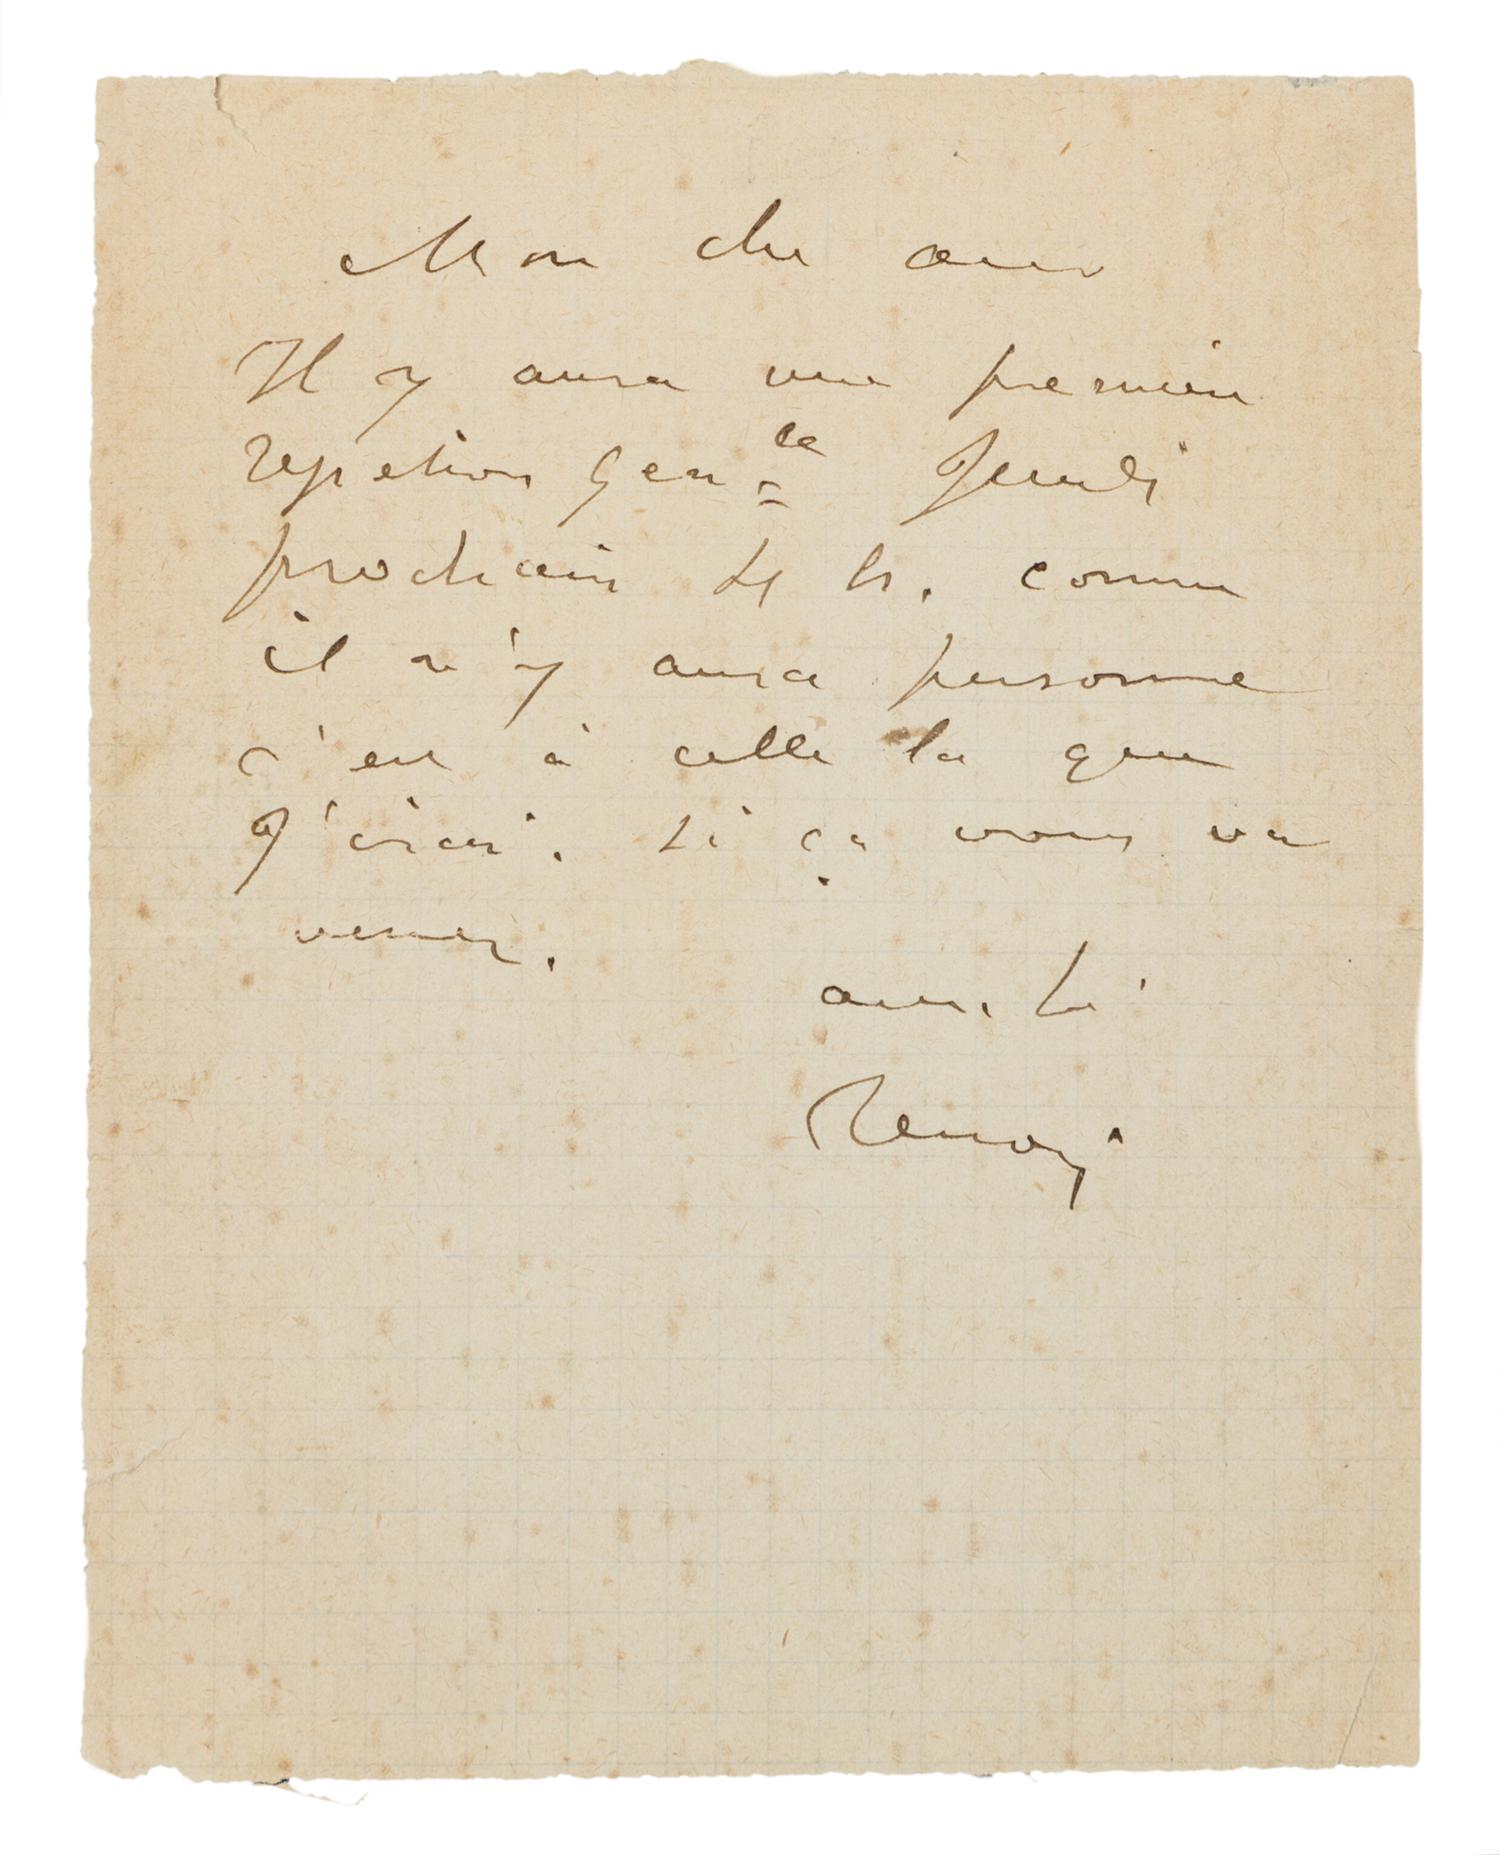 Mon cher ami
Il y aura une première
repetion Genle Jeudi
prochain 4 h. comme
il n'y aura personne
c'est à celle la que
J'irai. Si ça vous va
venez.
amitié
Renoir